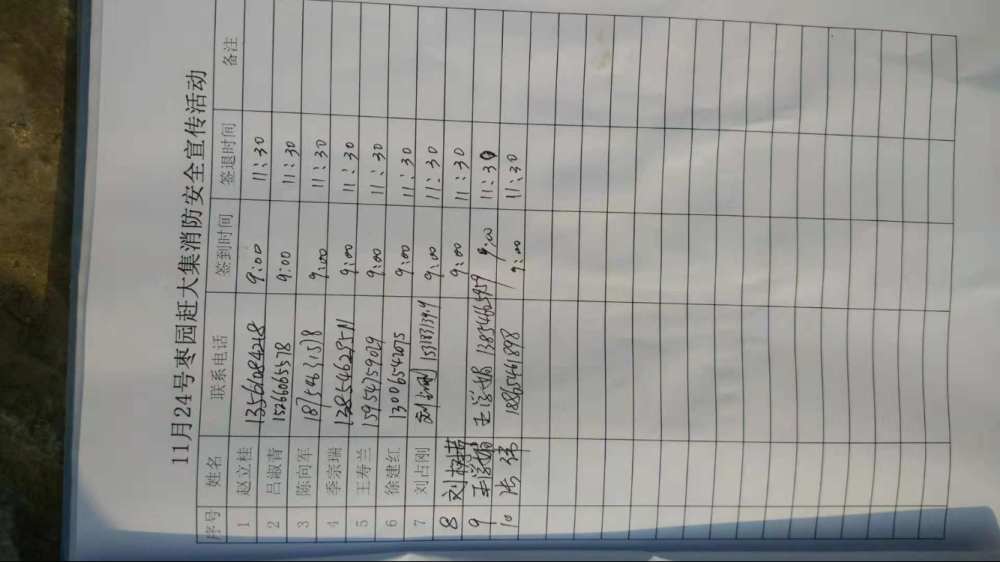 11月24号枣园赶大集消防安全宣传活动
序号 姓名 联系电话 签到时间 签退时间 备注
1 赵立桂 13561084218 9:00 11:30
2 吕淑青 15266065578 9:00 11:30
3 陈向军 9:00 11:30
4 季宗瑞 9:00 11:30
5 王寿兰 15954759029 9:00 11:30
6 徐建红 13006542075 9:00 11:30
7 刘占刚 9:00 11:30
8 刘 9:00 11:30
9 王 9:00 11:30
10 张伟 18865461898 9:00 11:30